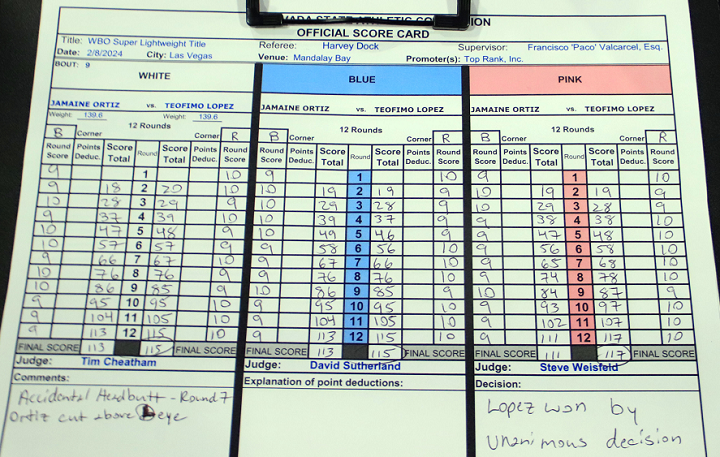 VADA STATE ATHLETIC CO ION
OFFICIAL SCORE CARD
Title: WBO Super Lightweight Title Referee: Harvey Dock Supervisor: Francisco 'Paco' Valcarcel, Esq.
Date: 2/8/2024 City: Las Vegas Venue: Mandalay Bay Promoter(s): Top Rank, Inc.
BOUT: 9
WHITE BLUE PINK
JAMAINE ORTIZ vs. TEOFIMO LOPEZ JAMAINE ORTIZ vs. TEOFIMO LOPEZ JAMAINE ORTIZ vs. TEOFIMO LOPEZ
Weight: 139.6 Weight: 139.6
12 Rounds 12 Rounds 12 Rounds
B Corner Corner R B Corner Corner R B Corner Corner R
Round Score Points Deduc. Score Total Round Score Total Points Deduc. Round Score Round Score Points Deduc. Score Total Round Score Total Points Deduc. Round Score Round Score Points Deduc. Score Total Round Score Total Points Deduc. Round Score
9 1 10 9 1 10 9 1 10
9 18 2 20 10 10 19 2 19 9 10 19 2 19 9
10 28 3 29 9 10 29 3 28 9 10 29 3 28 9
9 37 4 39 10 10 39 4 37 9 9 38 4 38 10
10 47 5 48 9 10 49 5 46 9 9 47 5 48 10
10 57 6 57 9 9 58 6 56 10 9 56 6 58 10
9 66 7 67 10 9 67 7 66 10 9 65 7 68 10
10 76 8 76 9 9 76 8 76 10 9 74 8 78 10
10 86 9 85 9 10 86 9 85 9 10 84 9 87 9
9 95 10 95 10 9 95 10 95 10 9 93 10 97 10
9 104 11 105 10 9 104 11 105 10 9 102 11 107 10
9 113 12 115 10 9 113 12 115 10 9 111 12 117 10
FINAL SCORE 113 115 FINAL SCORE FINAL SCORE 113 115 FINAL SCORE FINAL SCORE 111 117 FINAL SCORE
Judge: Tim Cheatham Judge: David Sutherland Judge: Steve Weisfeld
Comments: Explanation of point deductions: Decision:
Accidental Headbutt - Round 7
Ortiz cut above L eye
Lopez won by
Unanimous decision